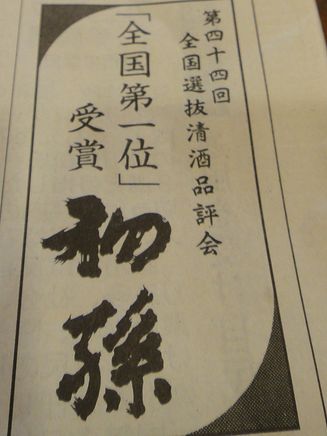 第四十四回
全国選抜清酒品評会
「全国第一位」
受賞
初孫